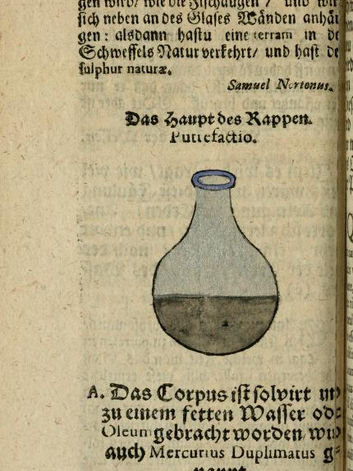 gen wird/ wie die Fischaugen / und wir
sich neben an des Glases Wänden anhän
gen: alsdann hastu eine terram in de
Schweffels Natur verkehrt/ und hast de
sulphur naturæ.
Samuel Nortonus.
Das Haupt des Rappen.
Putrefactio.
A. Das Corpus ist solvirt un
zu einem fetten Wasser ode
Oleum gebracht worden/ wir
auch Mercurius Duplimatus g
nannt